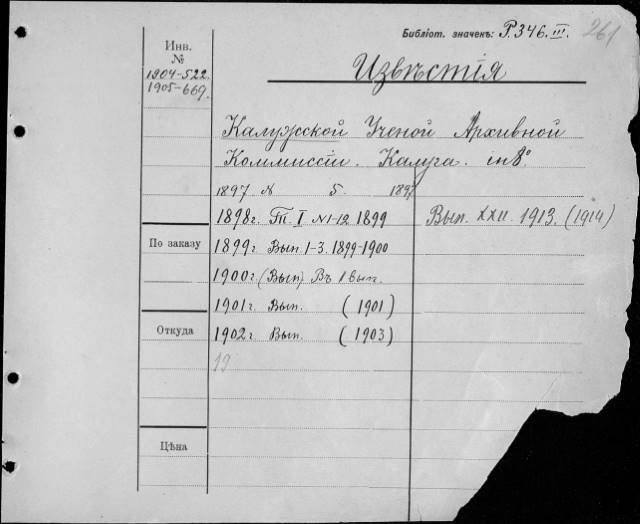 Библіот. значекъ: Р.346.III. 261
Инв.
№
1904-522
1905-669.
Извѣстія
Калужской Ученой Архивной
Коммиссіи. Калуга. in 8°
1897 № 5. 1897
1898г. Т. I №1-12 1899
Вып. XXII. 1913. (1914)
По заказу
1899г Вып 1-3. 1899-1900
1900г. (Вып) Въ 1 вып.
1901г. Вып. (1901)
Откуда
1902г. Вып. (1903)
19
Цѣна